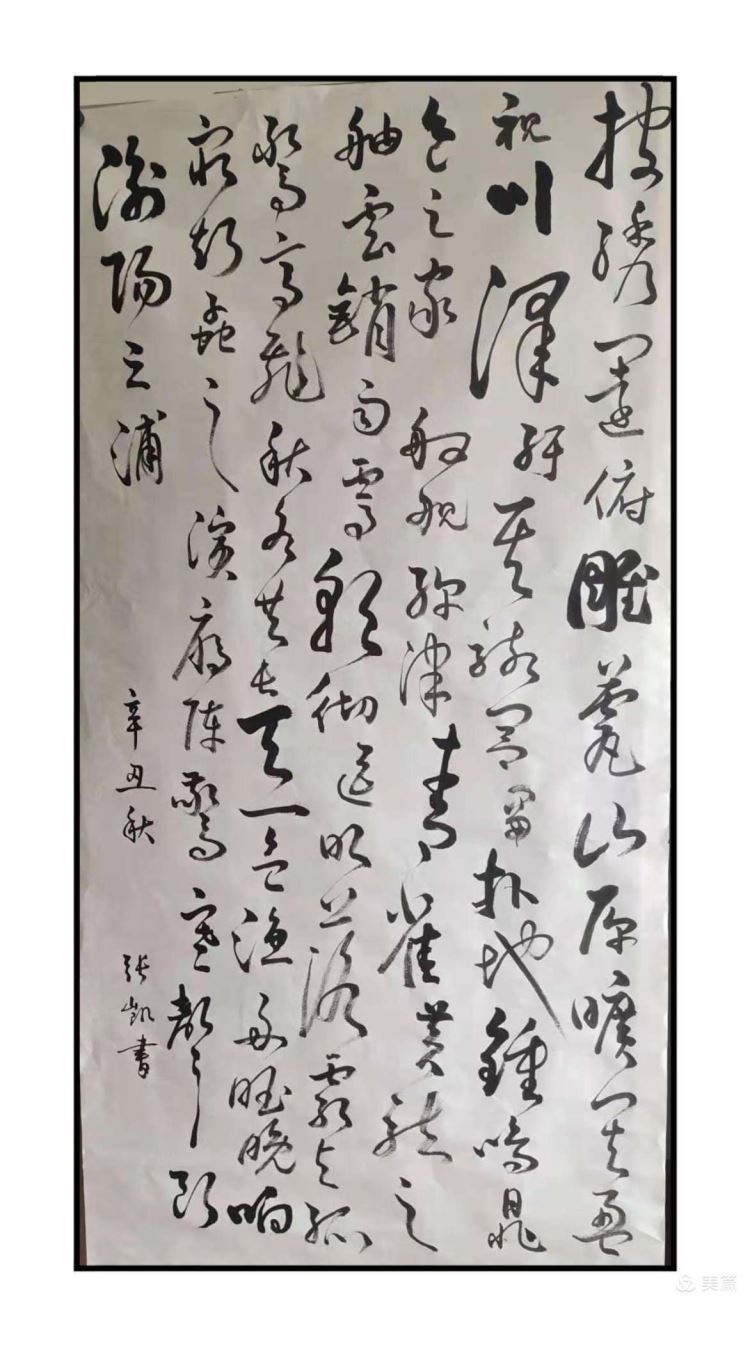 披绣闼俯雕甍山原曠其盈
视川澤纡其骇闾阎扑地鍾鸣鼎
食之家舸舰弥津青雀黄龙之
舳雲銷雨霁彩彻区明落霞与孤
鹜齐飛秋水共长天一色渔舟唱晚响
穷彭蠡之滨雁阵惊寒声断
衡阳之浦
辛丑秋 张凯書
美篇